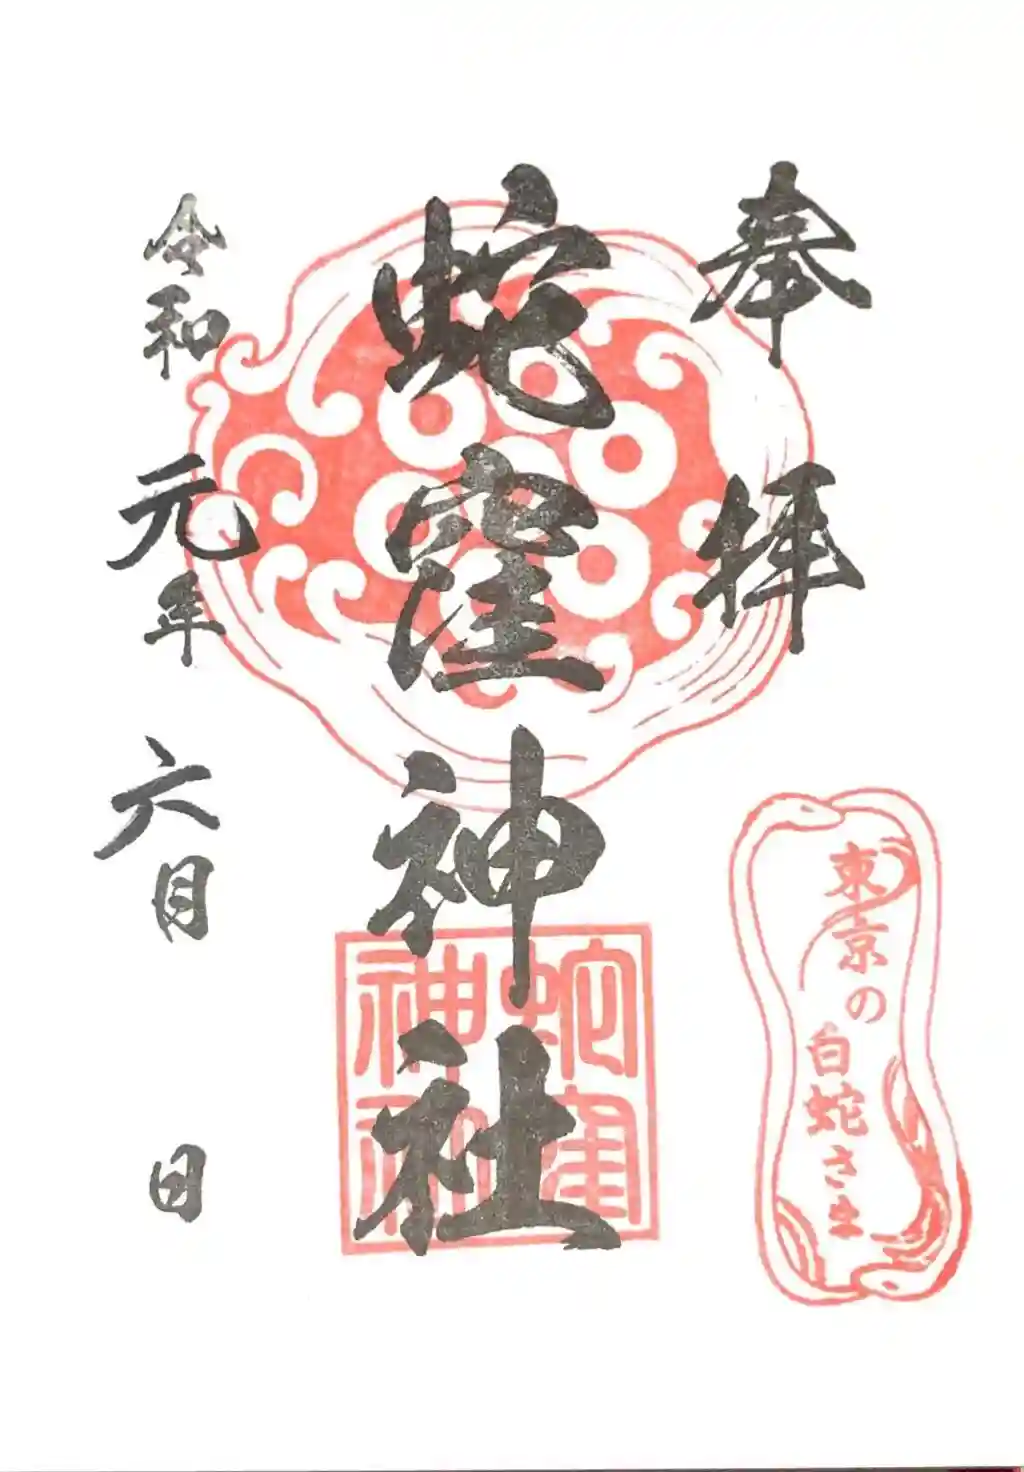 奉拝
蛇窪神社
令和元年六月 日
蛇窪
神社
東京の
白蛇さま